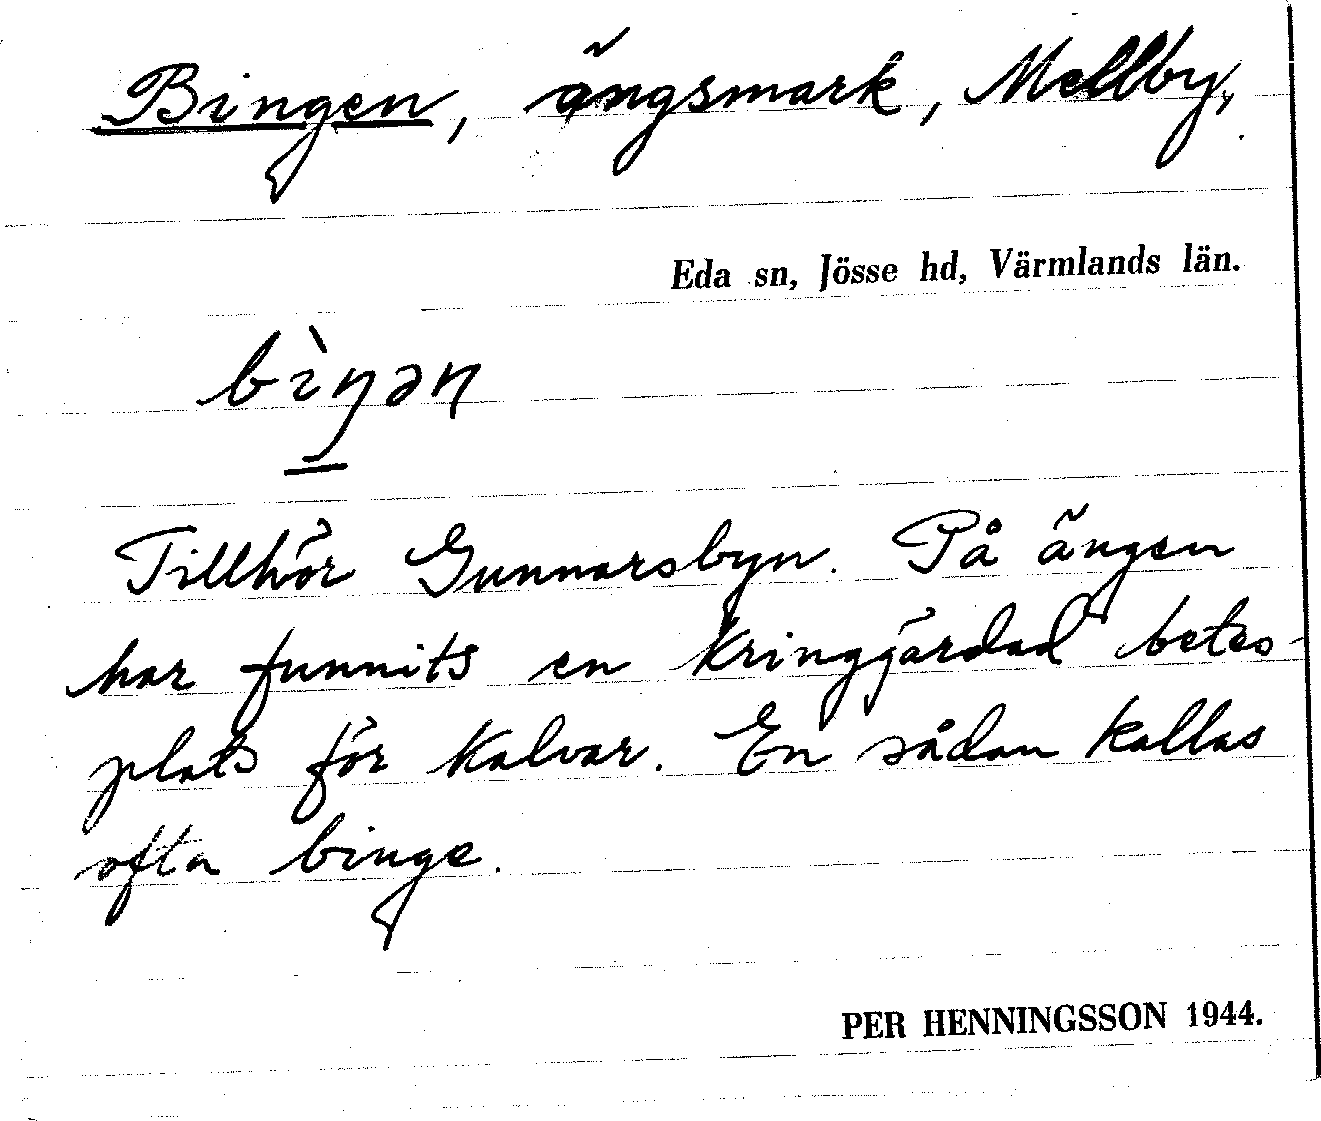 Bingen, ängsmark, Mellby,
Eda sn, Jösse hd, Värmlands län.
bìŋən
Tillhör Gunnarsbyn. På ängen
har funnits en kringgärdad betes-
plats för kalvar. En sådan kallas
ofta binge.
PER HENNINGSSON 1944.